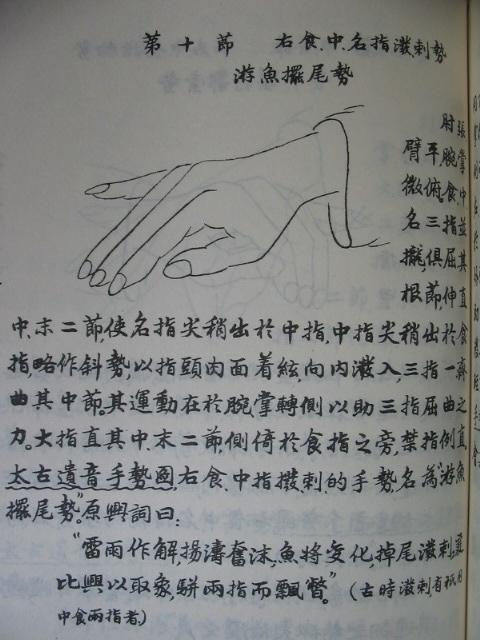 第十節 右食、中、名指潑剌勢
游魚擺尾勢
肘張
臂平,腕掌
微俯,食、中
名三指並
攏,俱屈其
根節,伸直
中、末二節,使名指尖稍出於中指,中指尖稍出於食
指,略作斜勢,以指頭肉面着絃,向内潑入,三指一齊
曲其中節。其運動在於腕掌轉側以助三指屈曲之
力。大指直其中、末二節,側倚於食指之旁,禁指例直,
太古遺音手勢圖,右食、中指撥剌的手勢名為“游魚
擺尾勢”。原興詞曰:
“雷雨作解,揚濤奮沫,魚將变化,掉尾潑剌,爰
比興以取象,駢兩指而飄瞥。”(古時潑剌有祇用
中食兩指者。)